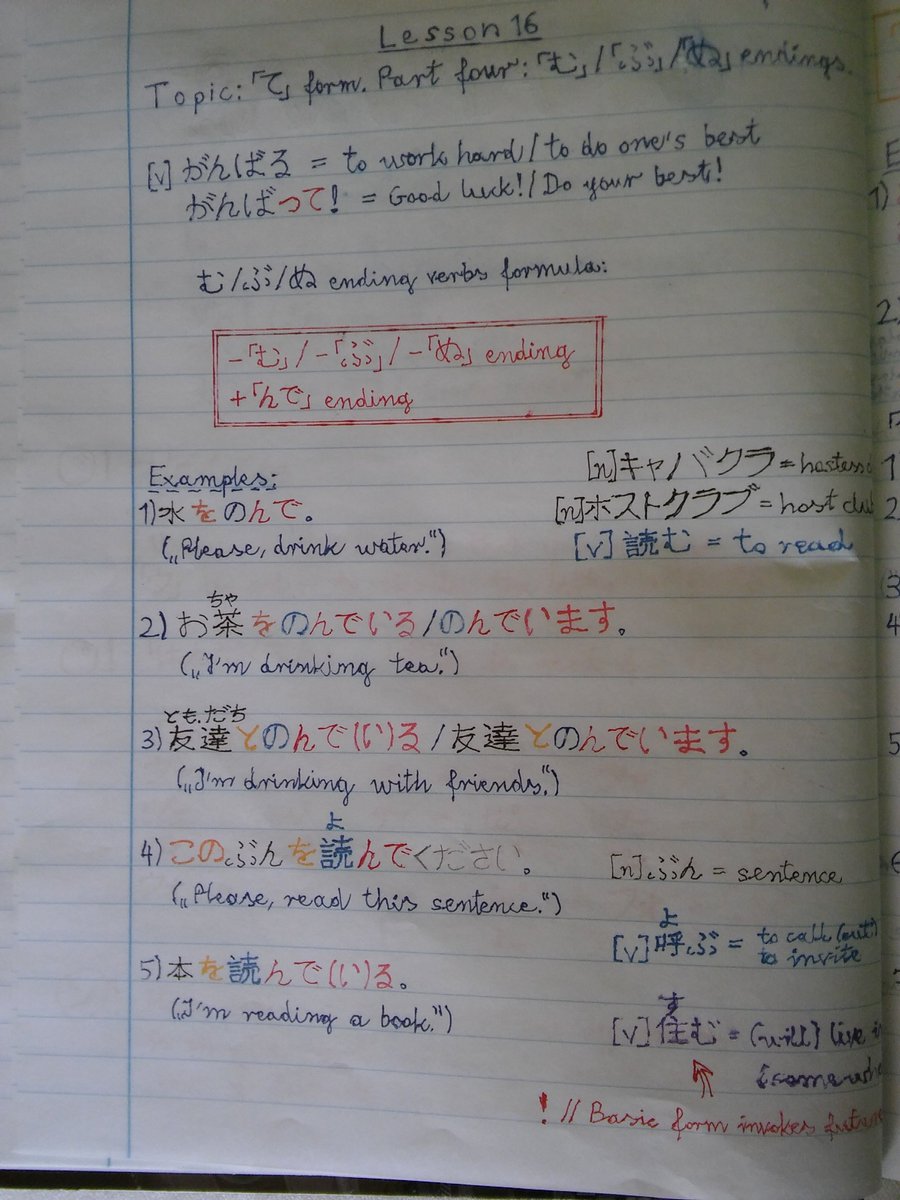 Lesson 16
Topic:「て」form. Part four:「む」/「ぶ」/「ぬ」endings.
[v] がんばる = to work hard/to do one's best
がんばって! = Good luck!/Do your best!
む/ぶ/ぬ ending verbs formula:
-「む」/ -「ぶ」/ -「ぬ」ending
+「んで」ending
Examples:
[n]キャバクラ = hostess
1)水をのんで。
[n]ホストクラブ = host clu
(„Please, drink water.“)
[v] 読む = to read
ちゃ
2)お茶をのんでいる/のんでいます。
(„I'm drinking tea.“)
とも.だち
3)友達とのんで(い)る/友達とのんでいます。
(„I'm drinking with friends.“)
よ
4)このぶんを読んでください。
[n]ぶん = sentence
(„Please, read this sentence.“)
よ
[v]呼ぶ = to call (out)
to invite
5)本を読んで(い)る。
(„I'm reading a book.“)
す
[v]住む = (will) live
! // Basic form invokes
1)
2)
1
2
3
4
5